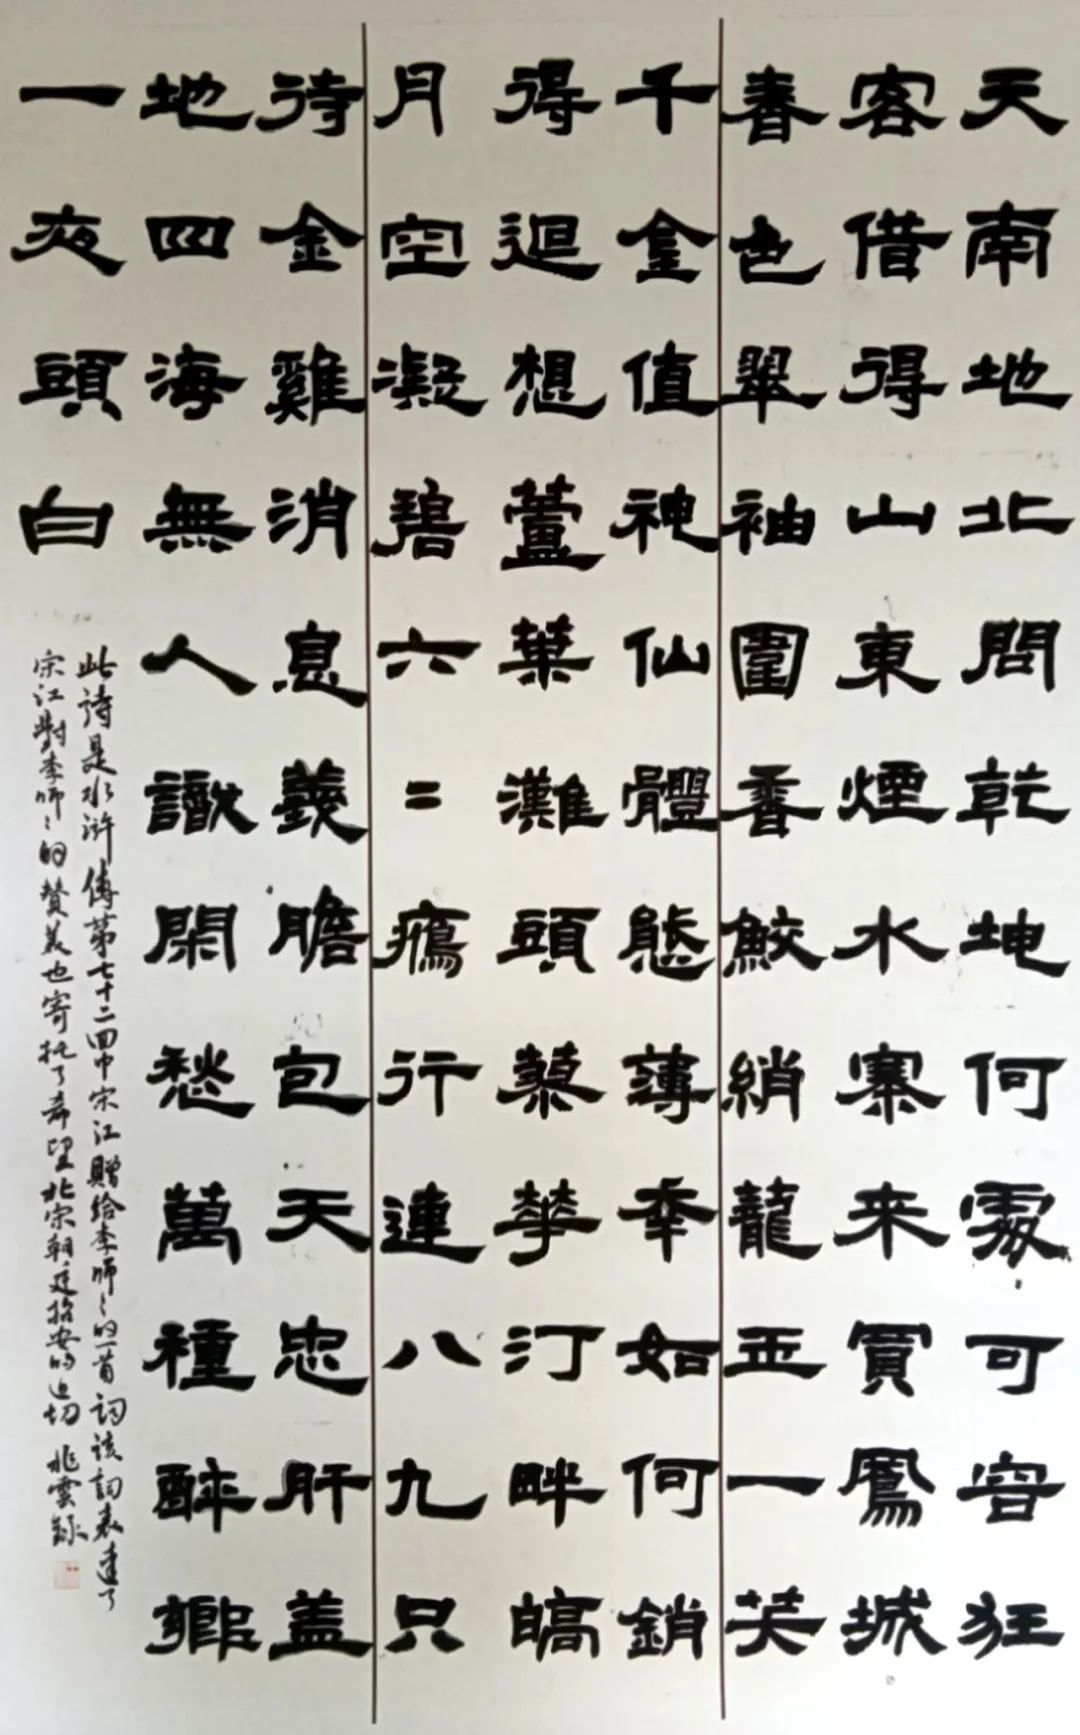 天南地北問乾坤何處可容狂
客借得山東煙水寨来買鳳城
春色翠袖圍香鮫綃龍玉一笑
千金值神仙體態薄幸如何銷
得迴想蘆葉灘頭蓼花汀畔皓
月空凝碧六二鴈行連八九只
待金雞消息義膽包天忠肝盖
地四海無人識閑愁萬種醉鄉
一夜頭白
此詩是水滸傳第七十二回中宋江贈給李師〻的一首詞該詞表達了
宋江對李師〻的贊美也寄托了希望北宋朝廷招安的迫切 兆雲錄